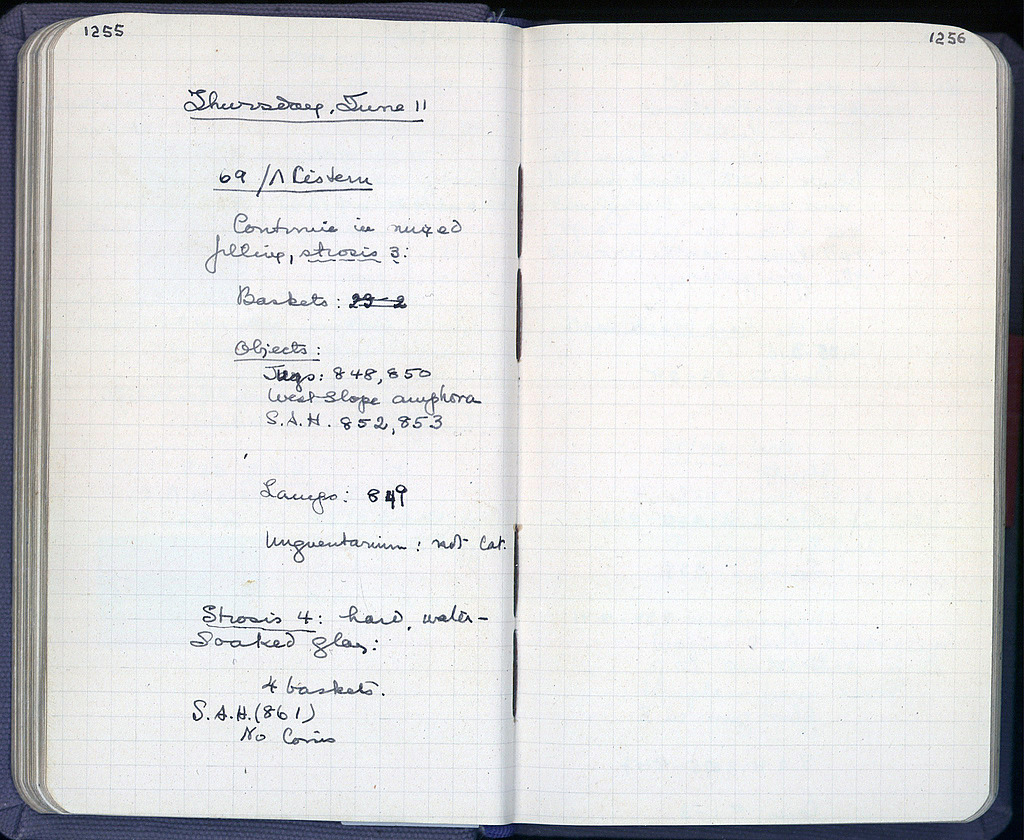 1255
Thursday, June 11
69/Λ Cistern
Continue in mixed
filling, strosis 3:
Baskets: 29-2
Objects:
Jugs: 848, 850
West Slope amphora
S.A.H. 852, 853
Lamps: 849
Unguentarium: not Cat.
Strosis 4: hard, water-
soaked glay:
4 baskets.
S.A.H. (861)
No Coins
1256